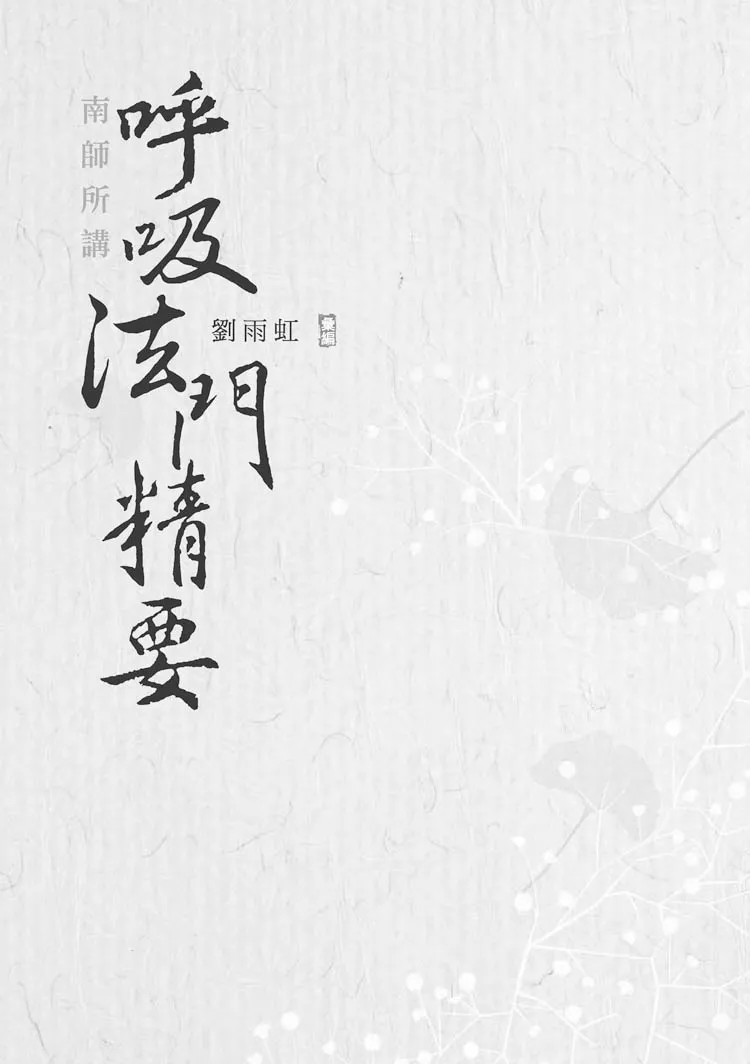 南師所講
呼吸法門精要
劉雨虹
彙編